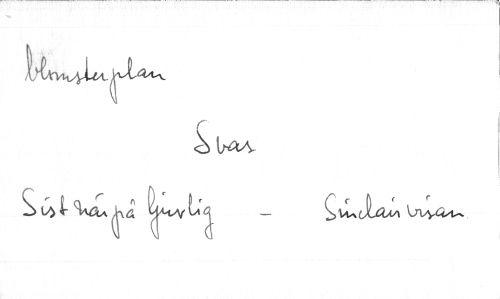 blomsterplan
Svas
Sist när på ljuvlig - Sinclairvisan